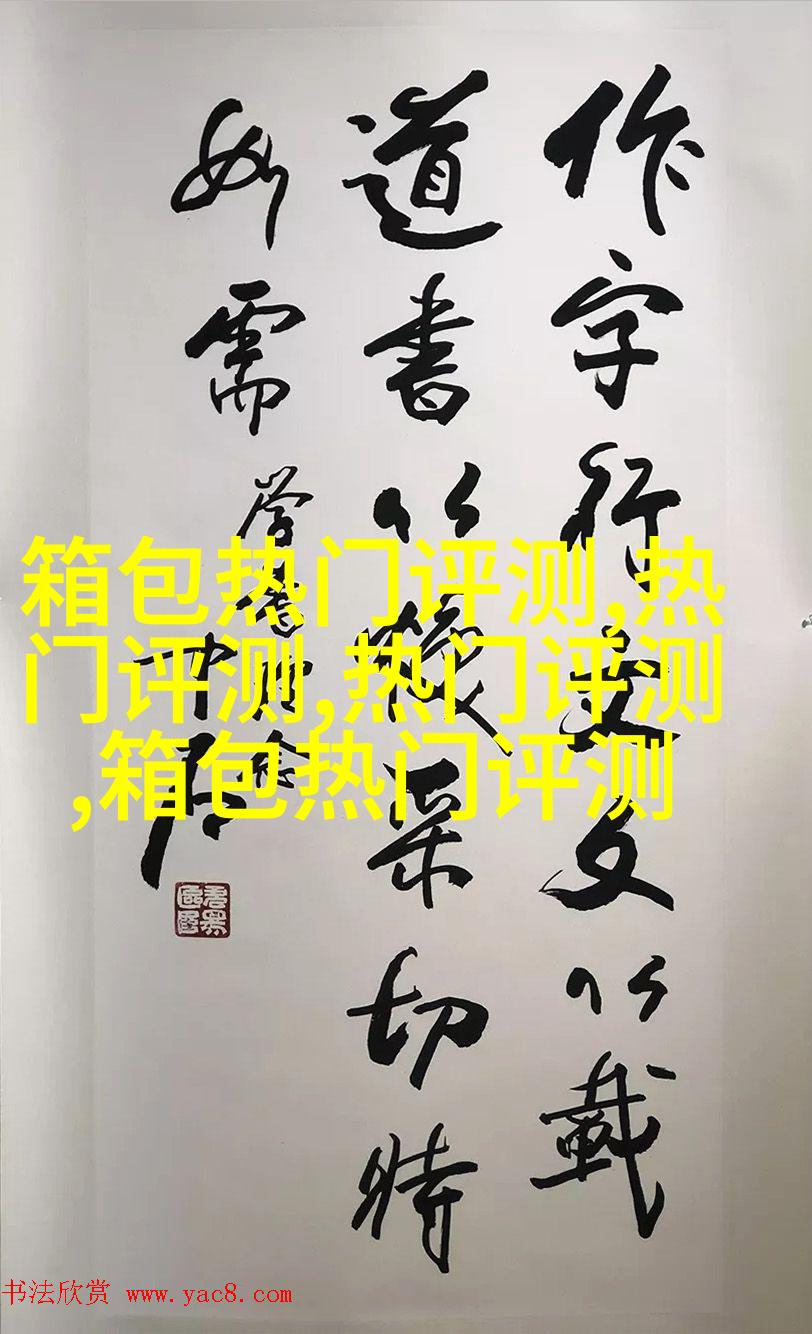 作字行文文以載
道書以煥采切時
如需
中石
箱包热门评测,热
门评测,热门评测
,箱包热门评测
书法欣赏 www.yac8.com